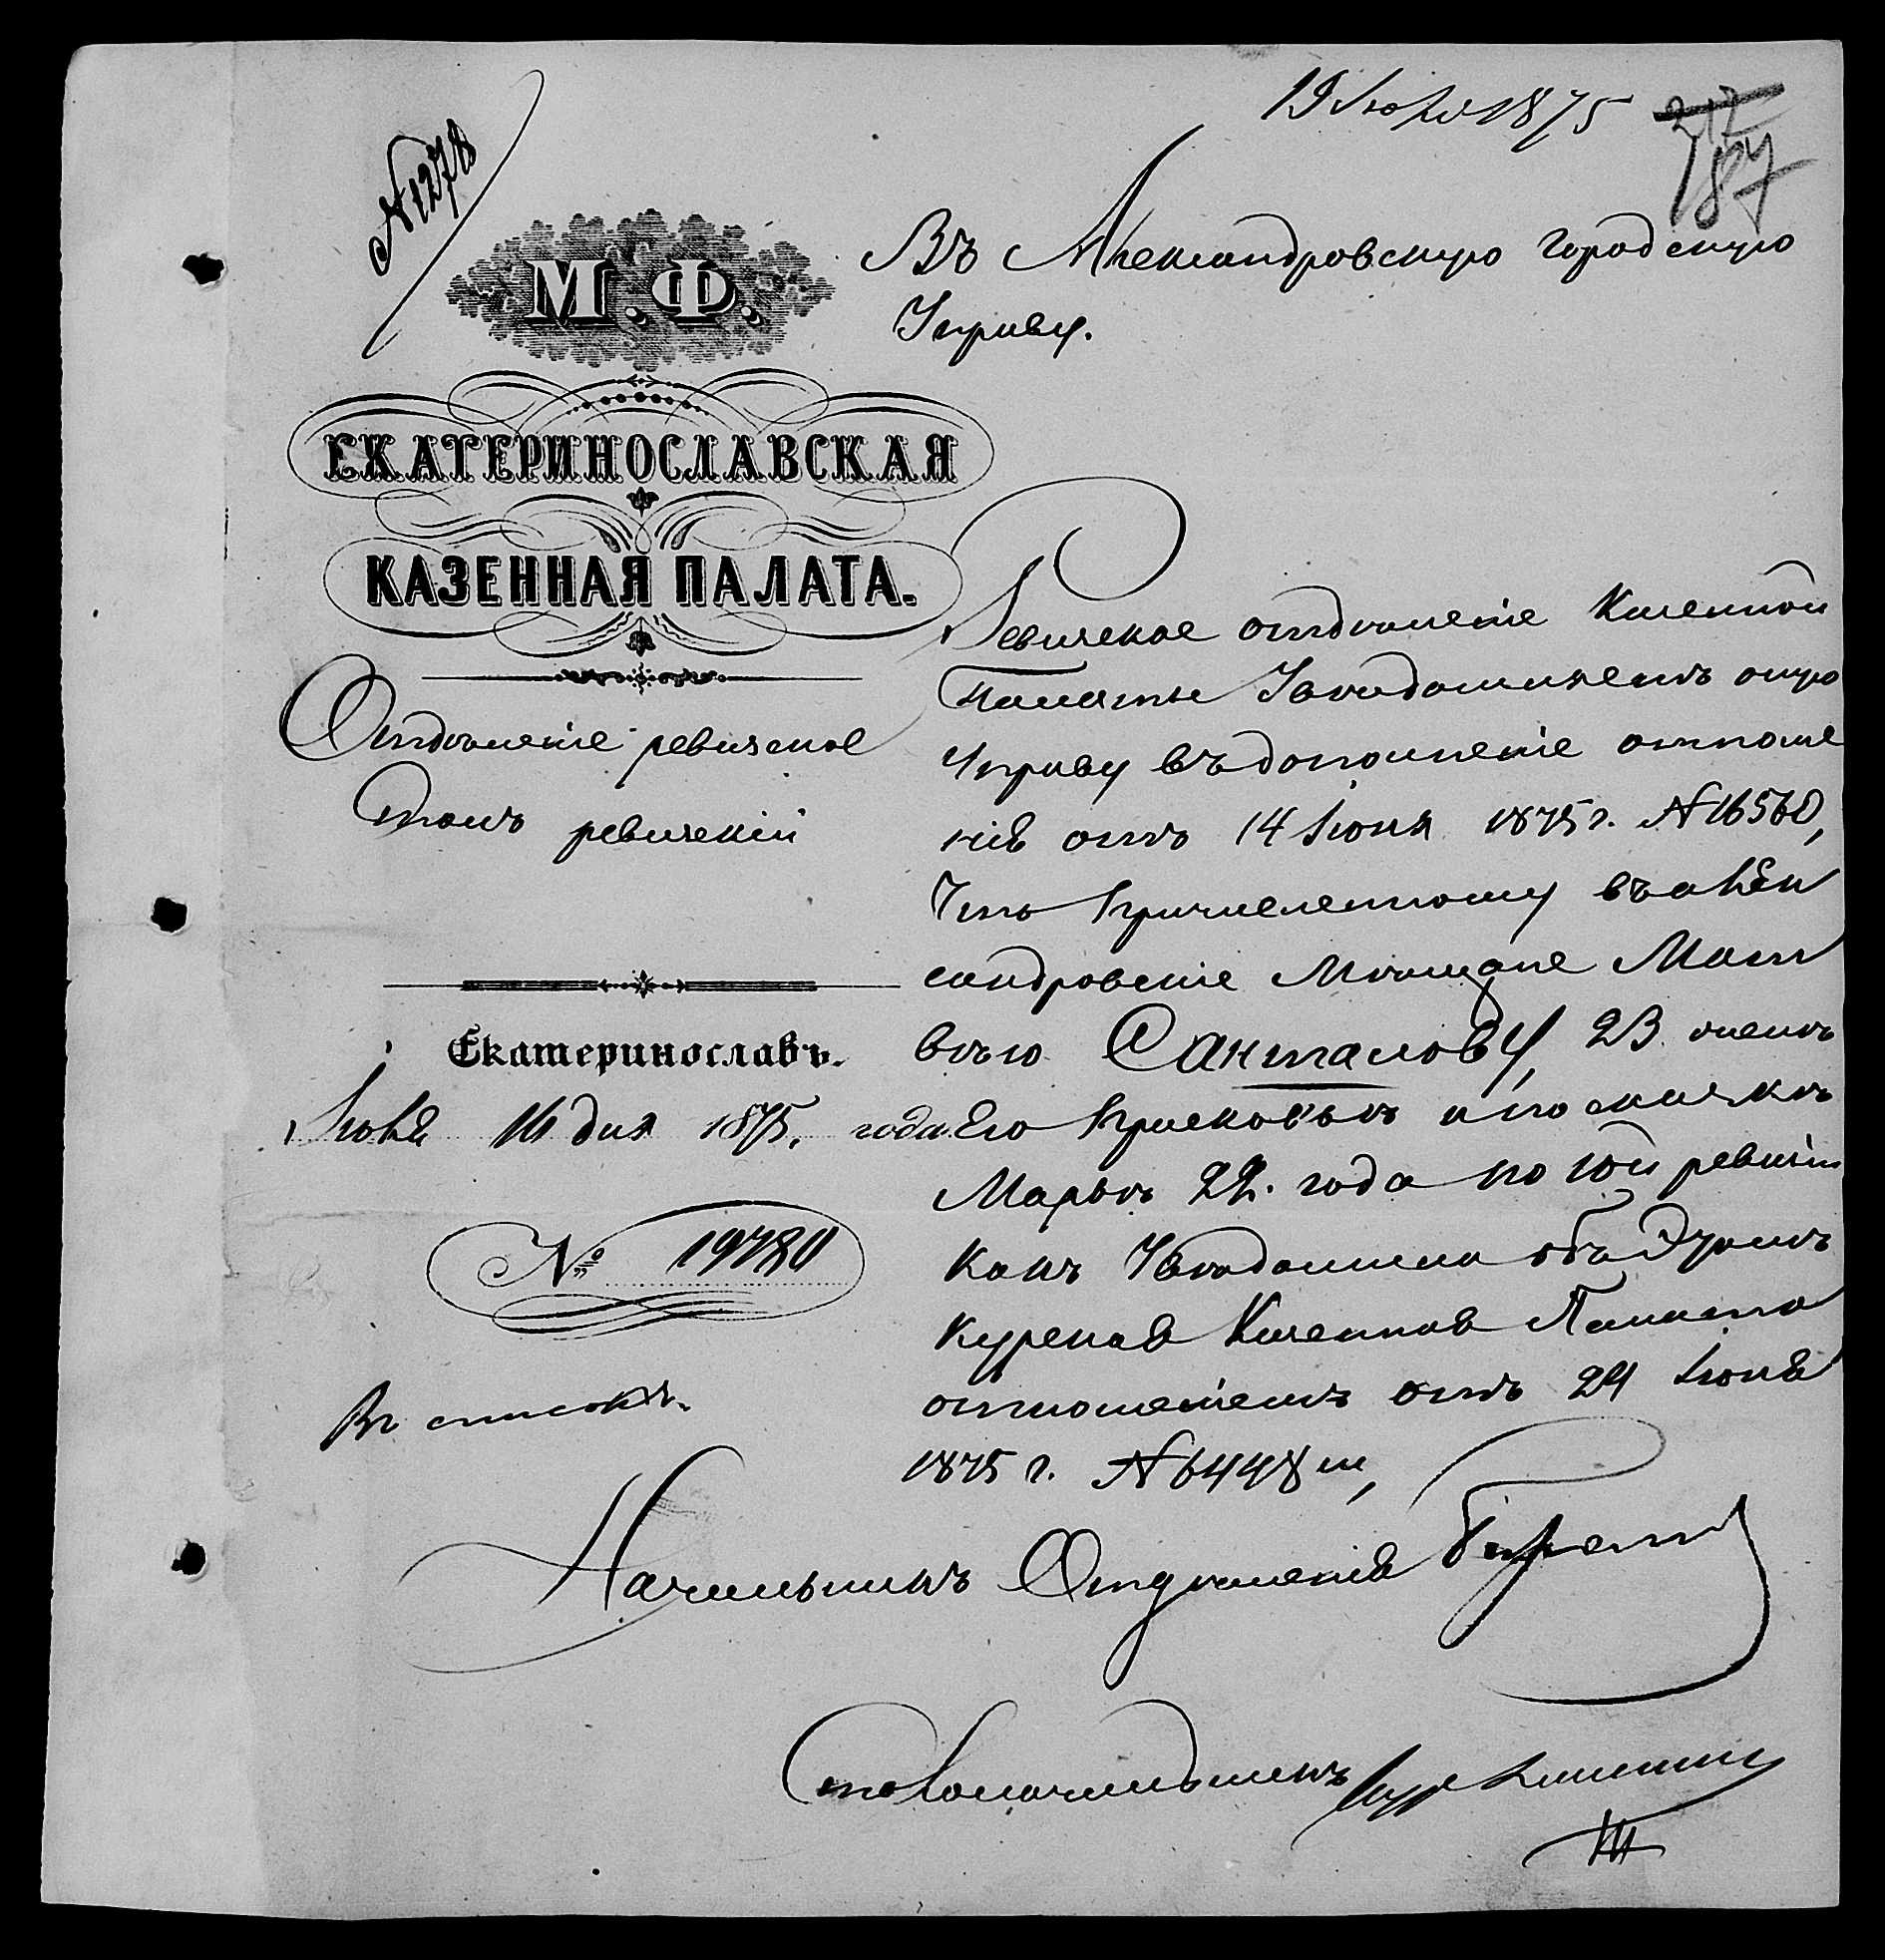 19 Июля 1875
187
№ 1278
М.Ф.
ЕКАТЕРИНОСЛАВСКАЯ
КАЗЕННАЯ ПАЛАТА.
Отдѣленіе ревизское
Столъ ревизскій
Екатеринославъ.
Іюля 16 дня 1875. года
№ 19780
Въ списокъ.
Въ Александровскую городскую
Управу.
Ревизское отдѣленіе Казенной
Палаты Увѣдомляетъ оную
Управу въ дополненіе отноше
нія отъ 14 Іюня 1875 г. № 16560,
Что Причисленному въ Алек
сандровскіе Мѣщане Мат
вѣю Санталову, 23. лѣтъ
Марьѣ 22. года по 10й ревизіи
Какъ Увѣдомила объ Этомъ
Курская Казенная Палата
отношеніемъ отъ 24 Іюня
1875 г. № 6448м,
Начальникъ Отдѣленія
Столоначальникъ